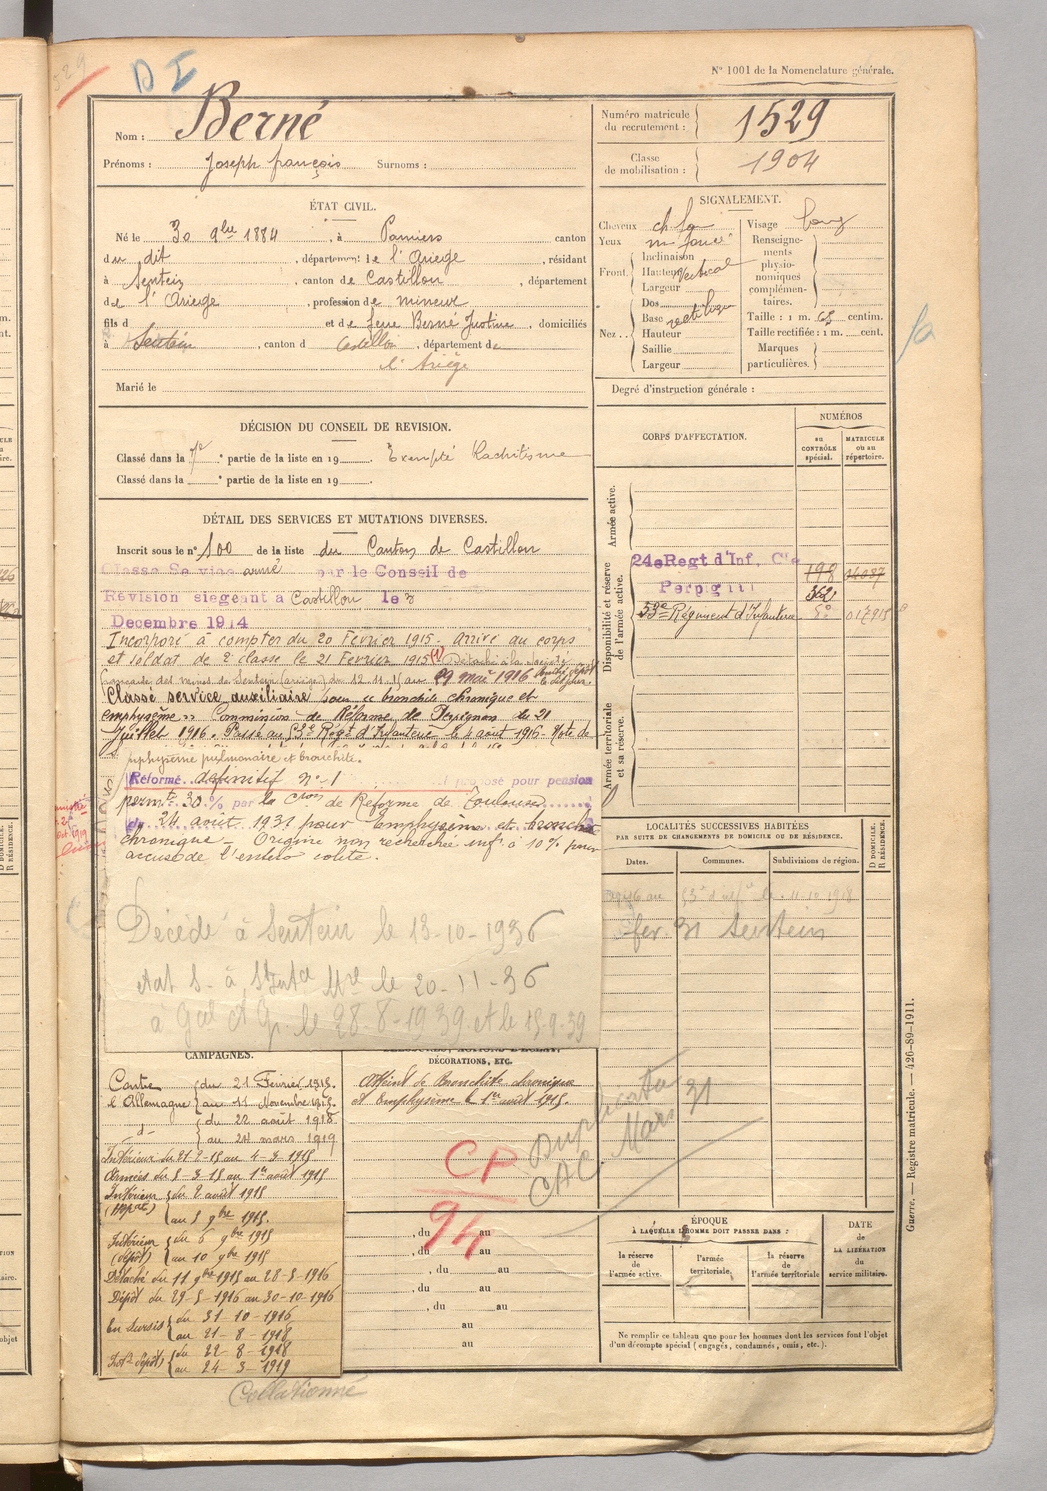 N° 1001 de la Nomenclature générale.
D I
Nom : Berné
Prénoms : Joseph françois Surnoms :
Numéro matricule du recrutement : 1529
Classe de mobilisation : 1904
ÉTAT CIVIL.
Né le 30 9bre 1884, à Pamiers canton
du dit, département de l'Ariège, résidant
à Sentein, canton de Castillon, département
de l'Ariège, profession de mineur
fils d et de feue Berné Justine, domiciliés
à Sentein, canton d Castillon, département de
l'Ariège
Marié le
SIGNALEMENT.
Cheveux ch. fon
Yeux
Front. Inclinaison
Hauteur Vertical
Largeur
Nez .. Dos
Base rectiligne
Hauteur
Saillie
Largeur
Visage long
Renseignements physionomiques complémentaires.
Taille : 1 m. 63 centim.
Taille rectifiée : 1 m. cent.
Marques particulières.
Degré d'instruction générale :
DÉCISION DU CONSEIL DE REVISION.
Classé dans la 7e partie de la liste en 19 . Exempté Rachitisme
Classé dans la e partie de la liste en 19 .
DÉTAIL DES SERVICES ET MUTATIONS DIVERSES.
Inscrit sous le n° 100 de la liste du Canton de Castillon
Classé Service armé par le Conseil de
Révision siégeant à Castillon le 3
Decembre 1914
Incorporé à compter du 20 Février 1915 - Arrivé au corps
et soldat de 2e classe le 21 Février 1915 (1) Détaché à la société
française des mines de Sentein (Ariège) du 12.11.15 au 29 mai 1916
Classé service auxiliaire pour "bronchite chronique et
emphysème" Commission de Réforme de Perpignan du 21
Juillet 1916. Passé au 53e Régt d'Infanterie le 4 août 1916
emphysème pulmonaire et bronchite.
Réformé définitif n° 1 proposé pour pension
permte 30 % par la Cion de Réforme de Toulouse
du 24 août 1931 pour Emphysème et bronchite
chronique - Origine non recherchée infr à 10 % pour
Décédé à Sentein le 13-10-1936
le 20-11-36
le 28-8-1939 et le 15.9.39
CORPS D'AFFECTATION.
NUMÉROS
au CONTRÔLE spécial.
MATRICULE ou au répertoire.
Armée active.
Disponibilité et réserve de l'armée active.
24e Regt d'Inf. Cie 198
Perpignan 362
53e Régiment d'Infanterie
Armée territoriale et sa réserve.
LOCALITÉS SUCCESSIVES HABITÉES
PAR SUITE DE CHANGEMENTS DE DOMICILE OU DE RÉSIDENCE.
Dates. Communes. Subdivisions de région.
D DOMICILE. R RÉSIDENCE.
fev 31 Sentein
CAMPAGNES.
Contre l'Allemagne { du 21 Février 1915.
au 11 Novembre 1915.
-d- { du 22 août 1918
au 24 mars 1919
Intérieur du 21-2-15 au 4-3-1915
Armées du 5-3-15 au 1er août 1915
Intérieur { du 2 août 1915
au 5 9bre 1915.
Intérieur (dépôt) { du 6 9bre 1915
au 10 9bre 1915
Détaché du 11 9bre 1915 au 28-5-1916
Dépôt du 29-5-1916 au 30-10-1916
En sursis { du 31-10-1916
au 21-8-1918
Intr dépôt { du 22-8-1918
au 24-3-1919
DÉCORATIONS, ETC.
Atteint de Bronchite chronique
et Emphysème le 1er août 1915.
CP
94
Duplicata
Mars 31
, du au
, du au
, du au
, du au
, du au
au
au
ÉPOQUE
À LAQUELLE L'HOMME DOIT PASSER DANS :
la réserve de l'armée active.
l'armée territoriale.
la réserve de l'armée territoriale
DATE de LA LIBÉRATION du service militaire.
Ne remplir ce tableau que pour les hommes dont les services font l'objet
d'un décompte spécial (engagés, condamnés, omis, etc.).
Guerre. — Registre matricule. — 426-89-1911.
Collationné